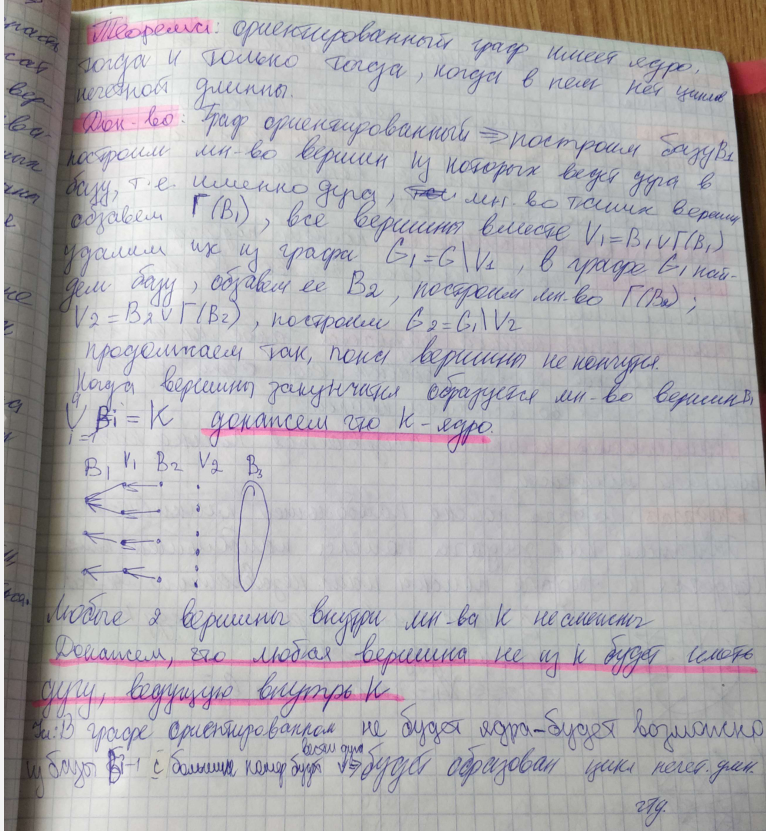 Теорема: ориентированный граф имеет ядро,
тогда и только тогда, когда в нем нет циклов
нечетной длинны.
Док-во: Граф ориентированный => построим базу B1
построим мн-во вершин из которых ведет дуга в
базу, т.е. именно дуга, мн-во таких вершин
обзавем Г(B1), все вершины вместе V1=B1∪Г(B1)
удалим их из графа G1=G\V1, в графе G1 най-
дем базу, обзавем ее B2, построим мн-во Г(B2);
V2=B2∪Г(B2), построим G2=G1\V2
продолжаем так, пока вершины не кончутся.
Когда вершины закунчатся образуется мн-во вершин B1
Bi = K докажем что K-ядро.
B1 V1 B2 V2 B3
Любые 2 вершины внутри мн-ва K несмежны
Докажем, что любая вершина не из K будет иметь
дугу, ведущую внутрь K
В графе ориентированном не будет ядра-будет возможно
из базы Bi-1 с большим номер будут вести дуга => будет образован цикл нечет. длин.
чтд.